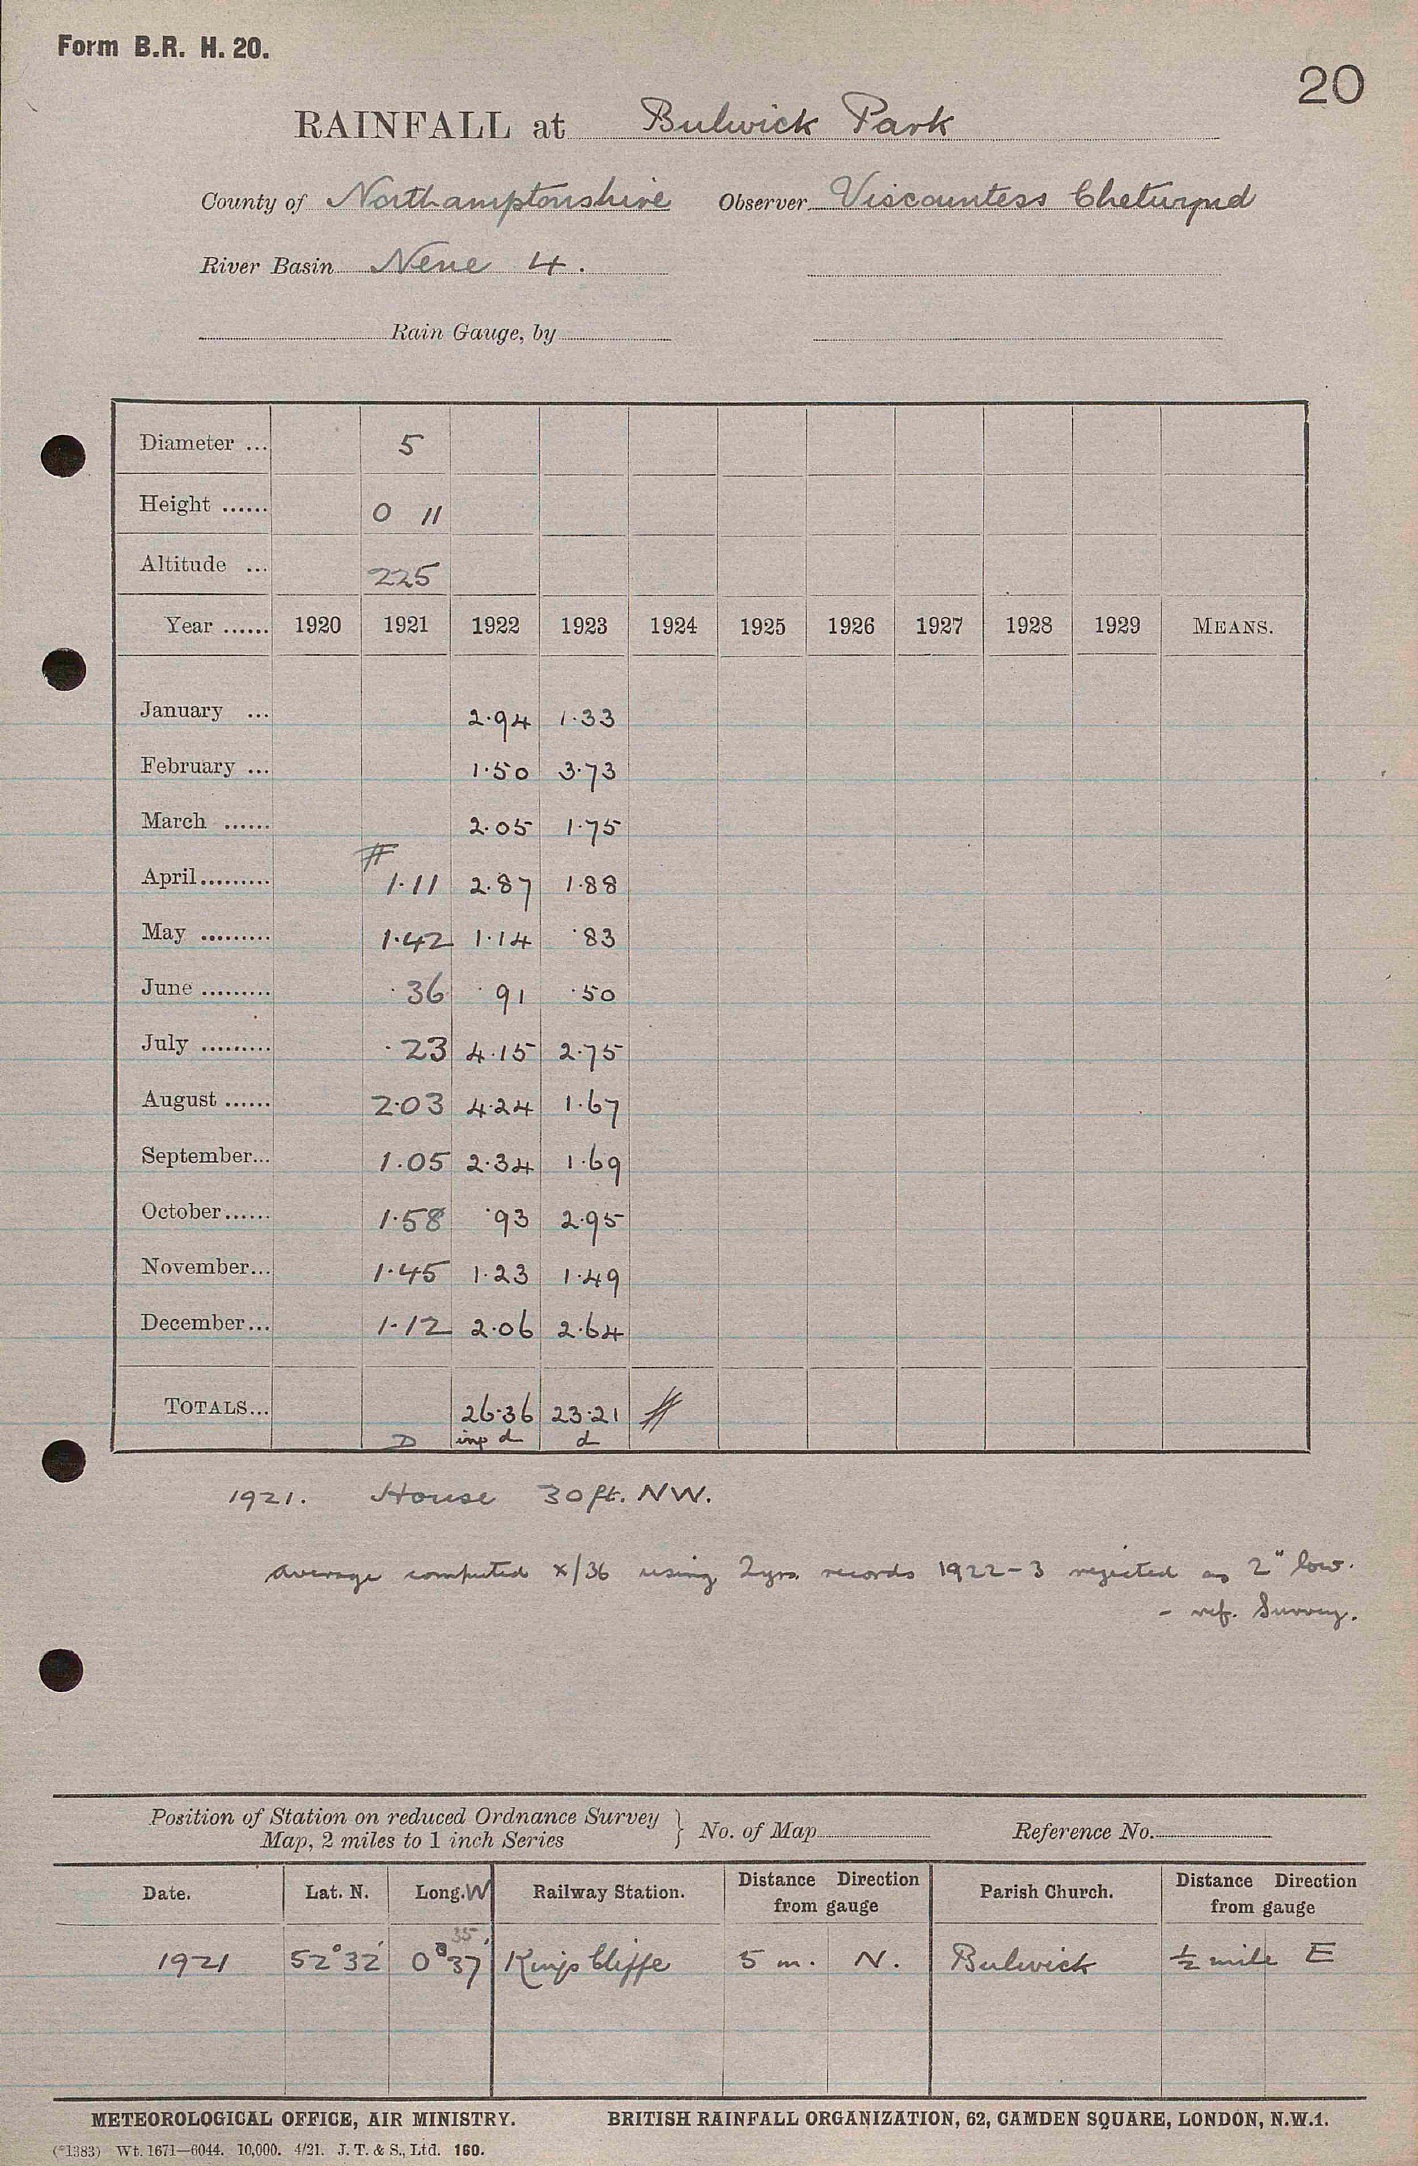 Form B.R. H. 20.
20
RAINFALL at Bulwick Park
County of Northamptonshire Observer Viscountess
River Basin Nene 4.
Rain Gauge, by
Diameter ... 5
Height ...... 0 11
Altitude ... 225
Year ...... 1920 1921 1922 1923 1924 1925 1926 1927 1928 1929 MEANS.
January ... 2.94 1.33
February ... 1.50 3.73
March ...... 2.05 1.75
April......... # 1.11 2.87 1.88
May ......... 1.42 1.14 .83
June ......... .36 .91 .50
July ......... .23 4.15 2.75
August ...... 2.03 4.24 1.67
September... 1.05 2.34 1.69
October...... 1.58 .93 2.95
November... 1.45 1.23 1.49
December... 1.12 2.06 2.64
TOTALS... 26.36 23.21 #
D inp d d
1921. House 30 ft. NW.
Average computed x/36 using 2 yrs. records 1922-3 rejected as 2" low.
- ref. Survey.
Position of Station on reduced Ordnance Survey
Map, 2 miles to 1 inch Series } No. of Map Reference No.
Date. Lat. N. Long. W Railway Station. Distance Direction from gauge Parish Church. Distance Direction from gauge
35'
1921 52°32' 0°37' Kings Cliffe 5 m. N. Bulwick ½ mile E
METEOROLOGICAL OFFICE, AIR MINISTRY. BRITISH RAINFALL ORGANIZATION, 62, CAMDEN SQUARE, LONDON, N.W.1.
(*1383) Wt. 1671—6044. 10,000. 4/21. J. T. & S., Ltd. 160.